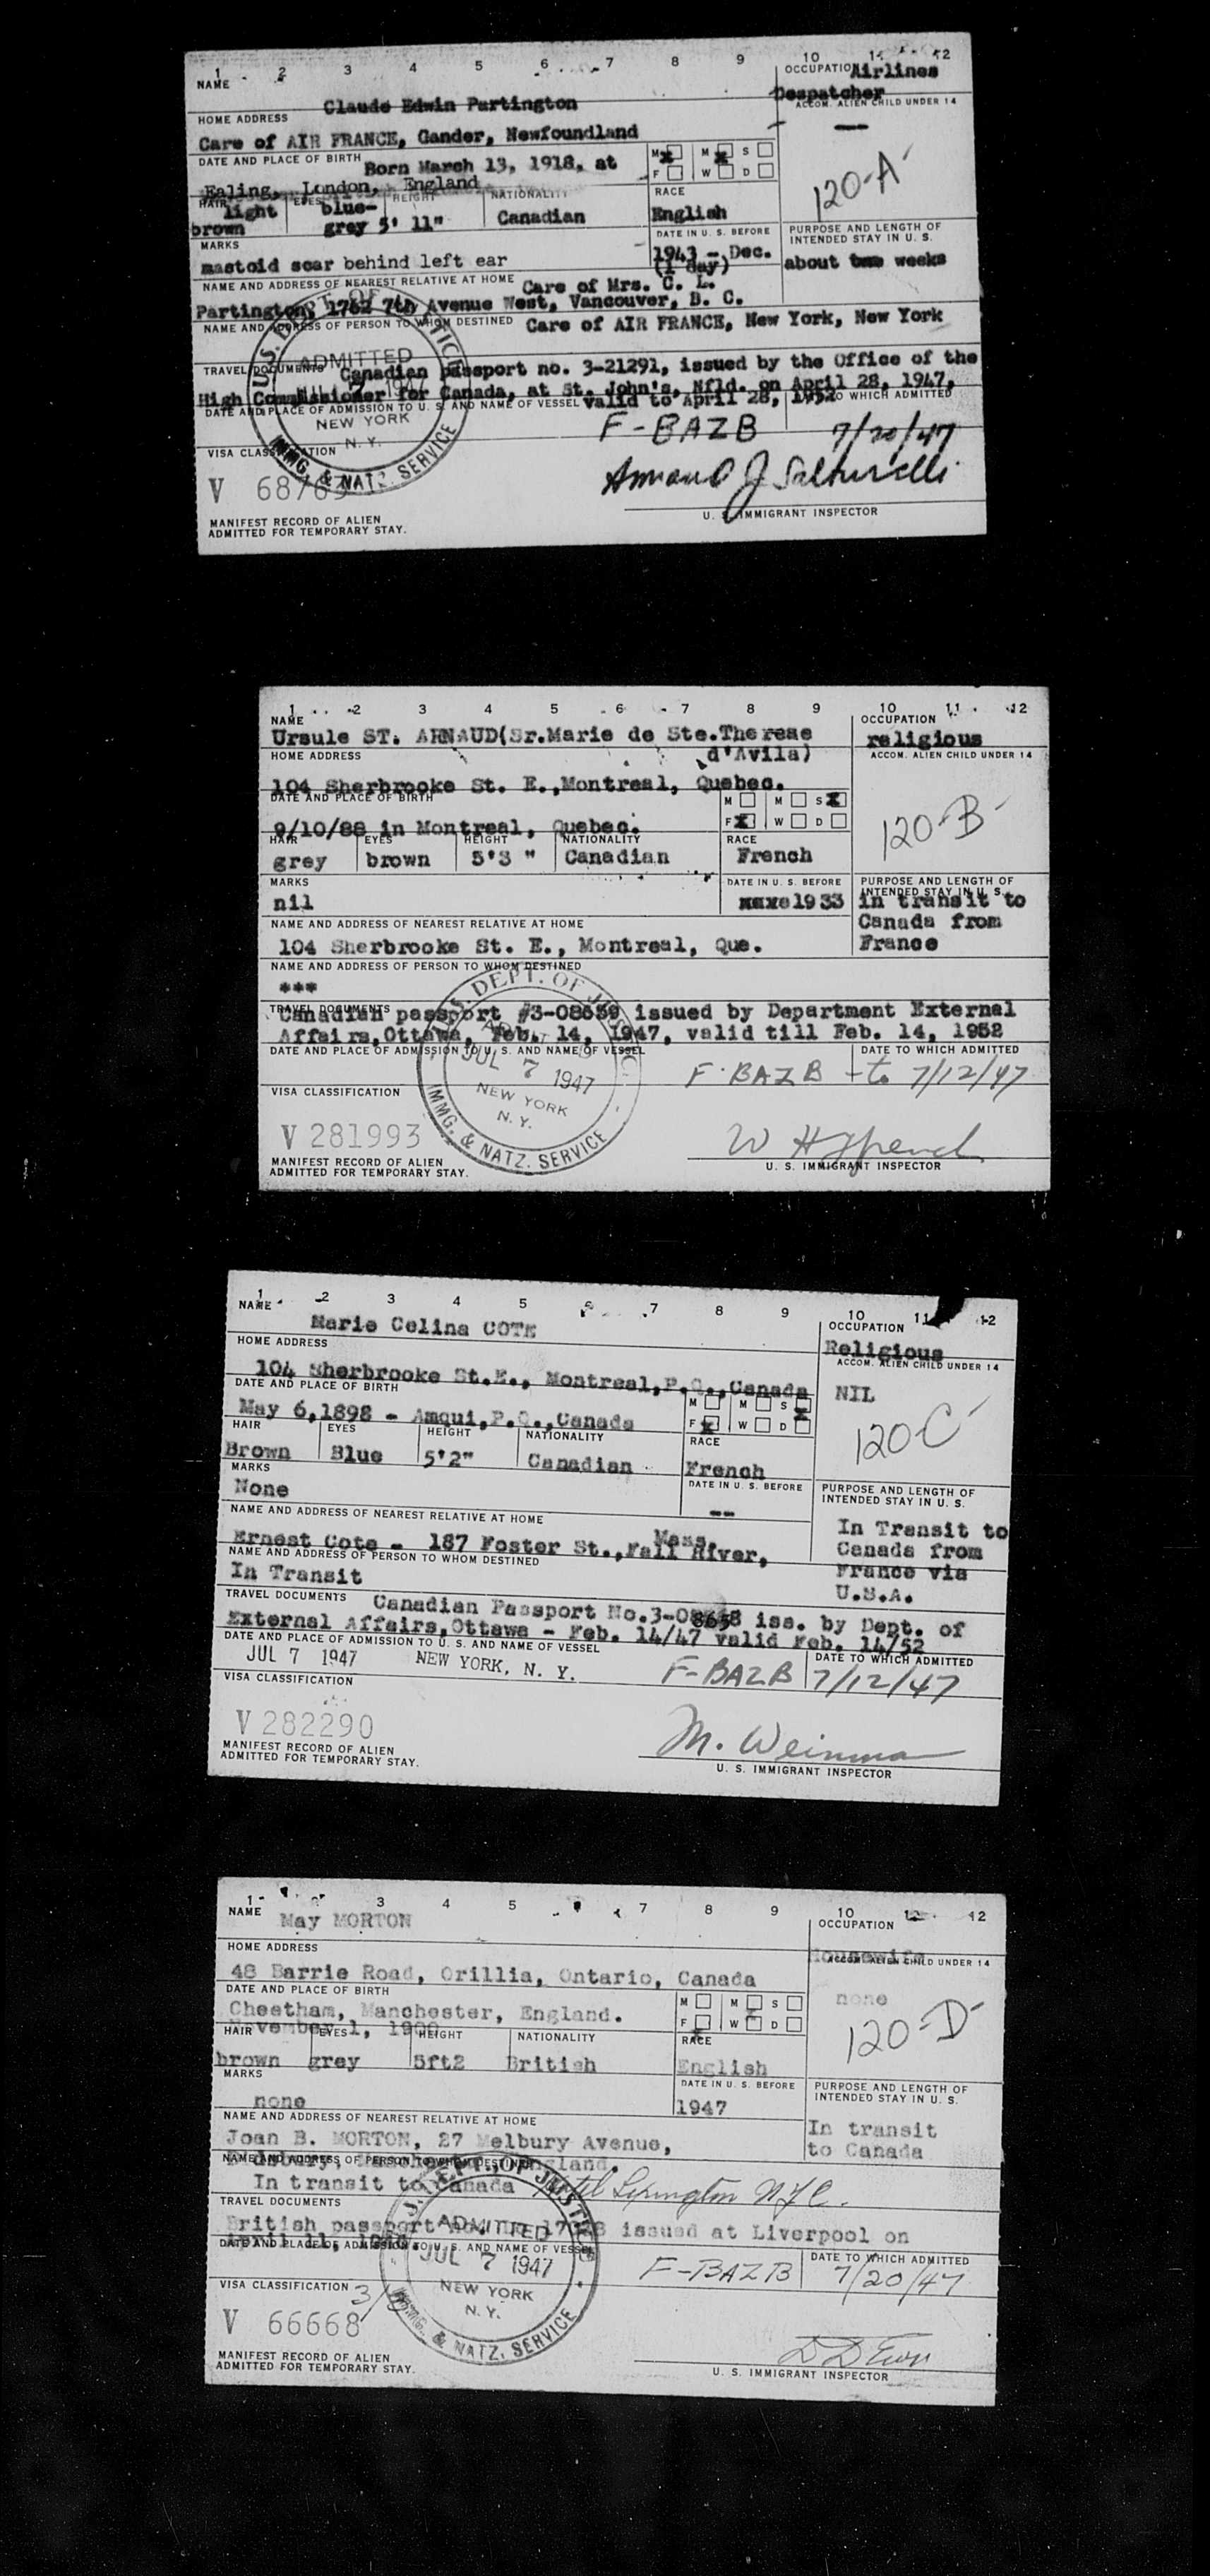 1 2 3 4 5 6 7 8 9 10 11 12
NAME
Claude Edwin Partington
OCCUPATION Airlines
Despatcher
ACCOM. ALIEN CHILD UNDER 14
HOME ADDRESS
Care of AIR FRANCE, Gander, Newfoundland
DATE AND PLACE OF BIRTH Born March 13, 1918, at
Ealing, London, England
M X M X S
F W D
120-A
HAIR EYES HEIGHT NATIONALITY RACE
light brown blue-grey 5' 11" Canadian English
MARKS
mastoid scar behind left ear
DATE IN U. S. BEFORE
1943 - Dec.
(1 day)
PURPOSE AND LENGTH OF
INTENDED STAY IN U. S.
about weeks
NAME AND ADDRESS OF NEAREST RELATIVE AT HOME Care of Mrs. C. L.
Partington, 1762 7th Avenue West, Vancouver, B. C.
NAME AND ADDRESS OF PERSON TO WHOM DESTINED Care of AIR FRANCE, New York, New York
TRAVEL DOCUMENTS Canadian passport no. 3-21291, issued by the Office of the
High Commissioner for Canada, at St. John's, Nfld. on April 28, 1947,
valid to April 28, 1952
DATE AND PLACE OF ADMISSION TO U. S. AND NAME OF VESSEL
TO WHICH ADMITTED
F-BAZB 7/20/47
U.S. DEPT. OF JUSTICE
ADMITTED
JUL 7 1947
NEW YORK
N. Y.
IMMG. & NATZ. SERVICE
VISA CLASSIFICATION
V 68763
U. S. IMMIGRANT INSPECTOR
MANIFEST RECORD OF ALIEN
ADMITTED FOR TEMPORARY STAY.
1 2 3 4 5 6 7 8 9 10 11 12
NAME
Ursule ST. ARNAUD(Sr.Marie de Ste.Therese
d'Avila)
OCCUPATION
religious
ACCOM. ALIEN CHILD UNDER 14
HOME ADDRESS
104 Sherbrooke St. E.,Montreal, Quebec.
DATE AND PLACE OF BIRTH
9/10/88 in Montreal, Quebec.
M M S X
F X W D
120-B
HAIR EYES HEIGHT NATIONALITY RACE
grey brown 5'3 " Canadian French
MARKS
nil
DATE IN U. S. BEFORE
1933
PURPOSE AND LENGTH OF
INTENDED STAY IN U. S.
in transit to
Canada from
France
NAME AND ADDRESS OF NEAREST RELATIVE AT HOME
104 Sherbrooke St. E., Montreal, Que.
NAME AND ADDRESS OF PERSON TO WHOM DESTINED
***
TRAVEL DOCUMENTS
Canadian passport #3-08659 issued by Department External
Affairs,Ottawa, Feb. 14, 1947, valid till Feb. 14, 1952
DATE AND PLACE OF ADMISSION TO U. S. AND NAME OF VESSEL
DATE TO WHICH ADMITTED
F-BAZB - to 7/12/47
U.S. DEPT. OF JUSTICE
ADMITTED
JUL 7 1947
NEW YORK
N. Y.
IMMG. & NATZ. SERVICE
VISA CLASSIFICATION
V 281993
U. S. IMMIGRANT INSPECTOR
MANIFEST RECORD OF ALIEN
ADMITTED FOR TEMPORARY STAY.
1 2 3 4 5 6 7 8 9 10 11 12
NAME
Marie Celina COTE
OCCUPATION
Religious
ACCOM. ALIEN CHILD UNDER 14
NIL
HOME ADDRESS
104 Sherbrooke St.E., Montreal,P.Q.,Canada
DATE AND PLACE OF BIRTH
May 6,1898 - Amqui,P.Q.,Canada
M M S X
F X W D
120-C
HAIR EYES HEIGHT NATIONALITY RACE
Brown Blue 5'2" Canadian French
MARKS
None
DATE IN U. S. BEFORE
--
PURPOSE AND LENGTH OF
INTENDED STAY IN U. S.
In Transit to
Canada from
France via
U.S.A.
NAME AND ADDRESS OF NEAREST RELATIVE AT HOME
Mass.
Ernest Cote - 187 Foster St.,Fall River,
NAME AND ADDRESS OF PERSON TO WHOM DESTINED
In Transit
TRAVEL DOCUMENTS Canadian Passport No.3-08658 iss. by Dept. of
External Affairs,Ottawa - Feb. 14/47 valid Feb. 14/52
DATE AND PLACE OF ADMISSION TO U. S. AND NAME OF VESSEL
DATE TO WHICH ADMITTED
JUL 7 1947 NEW YORK, N. Y. F-BAZB 7/12/47
VISA CLASSIFICATION
V 282290
M. Weinman
U. S. IMMIGRANT INSPECTOR
MANIFEST RECORD OF ALIEN
ADMITTED FOR TEMPORARY STAY.
1 2 3 4 5 6 7 8 9 10 11 12
NAME
May MORTON
OCCUPATION
Housewife
ACCOM. ALIEN CHILD UNDER 14
none
HOME ADDRESS
48 Barrie Road, Orillia, Ontario, Canada
DATE AND PLACE OF BIRTH
Cheetham, Manchester, England.
November 1, 1900
M M S
F W D
120-D
HAIR EYES HEIGHT NATIONALITY RACE
brown grey 5ft2 British English
MARKS
none
DATE IN U. S. BEFORE
1947
PURPOSE AND LENGTH OF
INTENDED STAY IN U. S.
In transit
to Canada
NAME AND ADDRESS OF NEAREST RELATIVE AT HOME
Joan B. MORTON, 27 Melbury Avenue,
Didsbury, Manchester, England.
NAME AND ADDRESS OF PERSON TO WHOM DESTINED
In transit to Canada Hotel Lexington NYC.
TRAVEL DOCUMENTS
British passport issued at Liverpool on
DATE AND PLACE OF ADMISSION TO U. S. AND NAME OF VESSEL
DATE TO WHICH ADMITTED
F-BAZB 7/20/47
U.S. DEPT. OF JUSTICE
ADMITTED
JUL 7 1947
NEW YORK
N. Y.
IMMG. & NATZ. SERVICE
VISA CLASSIFICATION
V 66668
U. S. IMMIGRANT INSPECTOR
MANIFEST RECORD OF ALIEN
ADMITTED FOR TEMPORARY STAY.